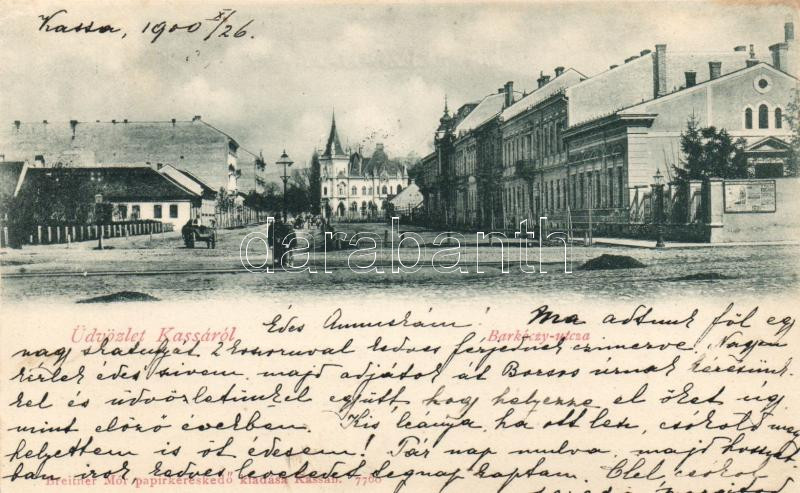 Kassa, 1900 X/26.
darabanth
Üdvözlet Kassáról
Barkóczy-utcza
Édes Annuskám! Ma adtunk föl egy
nagy skatulyát 2 koszorúval kedves férjednek czimezve. Nagyon
kérlek édes szivem, majd adjátok át Borsos úrnak kérésünk
kel és üdvözletünkkel együtt hogy helyezze el őket úgy
mint előző években. Kis leánya, ha ott lesz, csókold meg
helyettem is őt édesem! Pár nap mulva, majd hosszab
ban írok kedves leveledet tegnap kaptam. Ölel csókol
Breitner Mór papirkereskedő kiadása Kassán. 7700